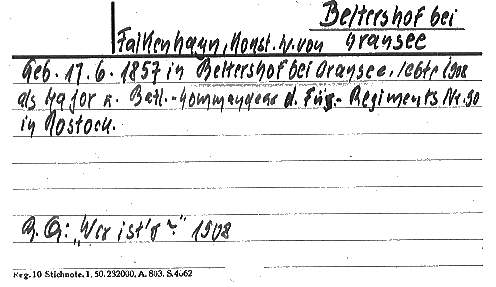 Beltershof bei
Falkenhayn, Konst. W. von Gransee
Geb. 17. 6. 1857 in Beltershof bei Gransee, lebte 1908
als Major u. Batl.-Kommandeur d. Füs.-Regiments Nr. 90
in Rostock.
B. Q: „Wer ist's?" 1908
Reg. 10 Stichnote. I. 50. 232000, A. 803. S. 4662